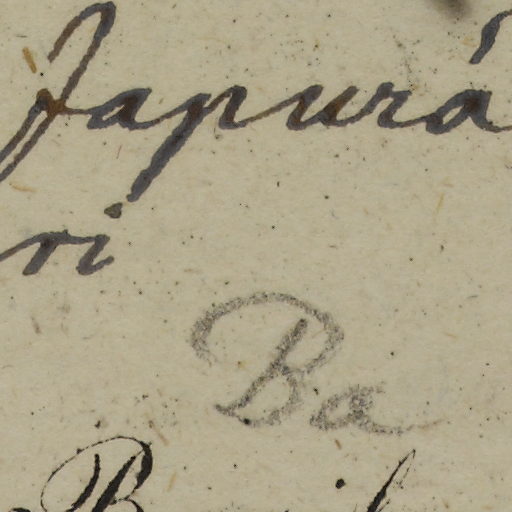 Japurá
ri
Ba